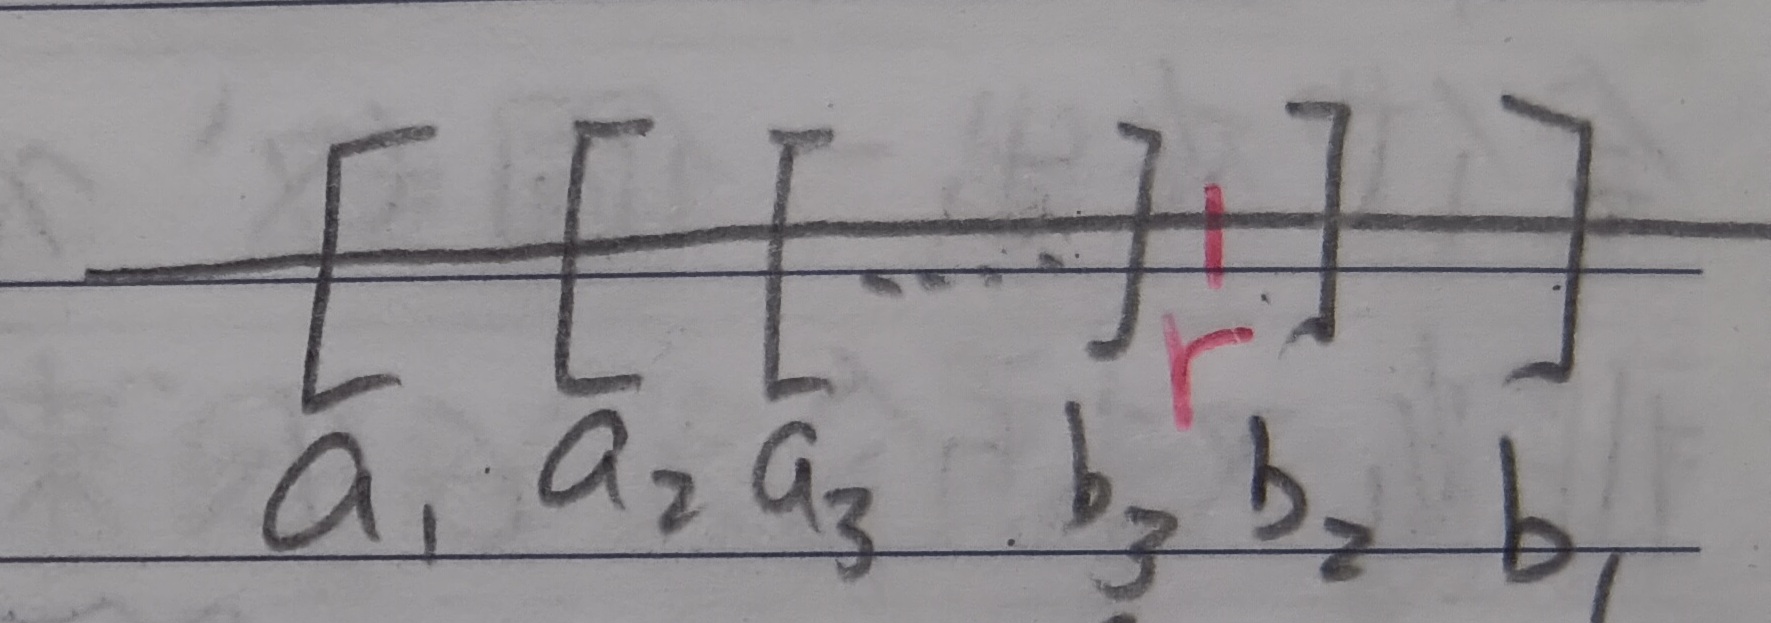 [ [ [ .... ] ] ]
r
a₁ a₂ a₃ b₃ b₂ b₁